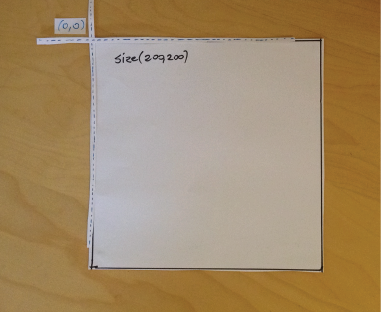 (0,0)
size(200,200)